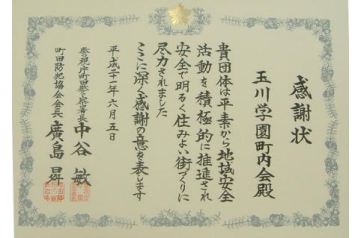 感謝状
玉川学園町内会殿
貴団体は平素から地域安全
活動を積極的に推進され
安全で明るく住みよい街づくりに
尽力されました
ここに深く感謝の意を表します
平成二十一年六月五日
警視庁町田警察署長 中谷敏
町田防犯協会会長 廣島昇